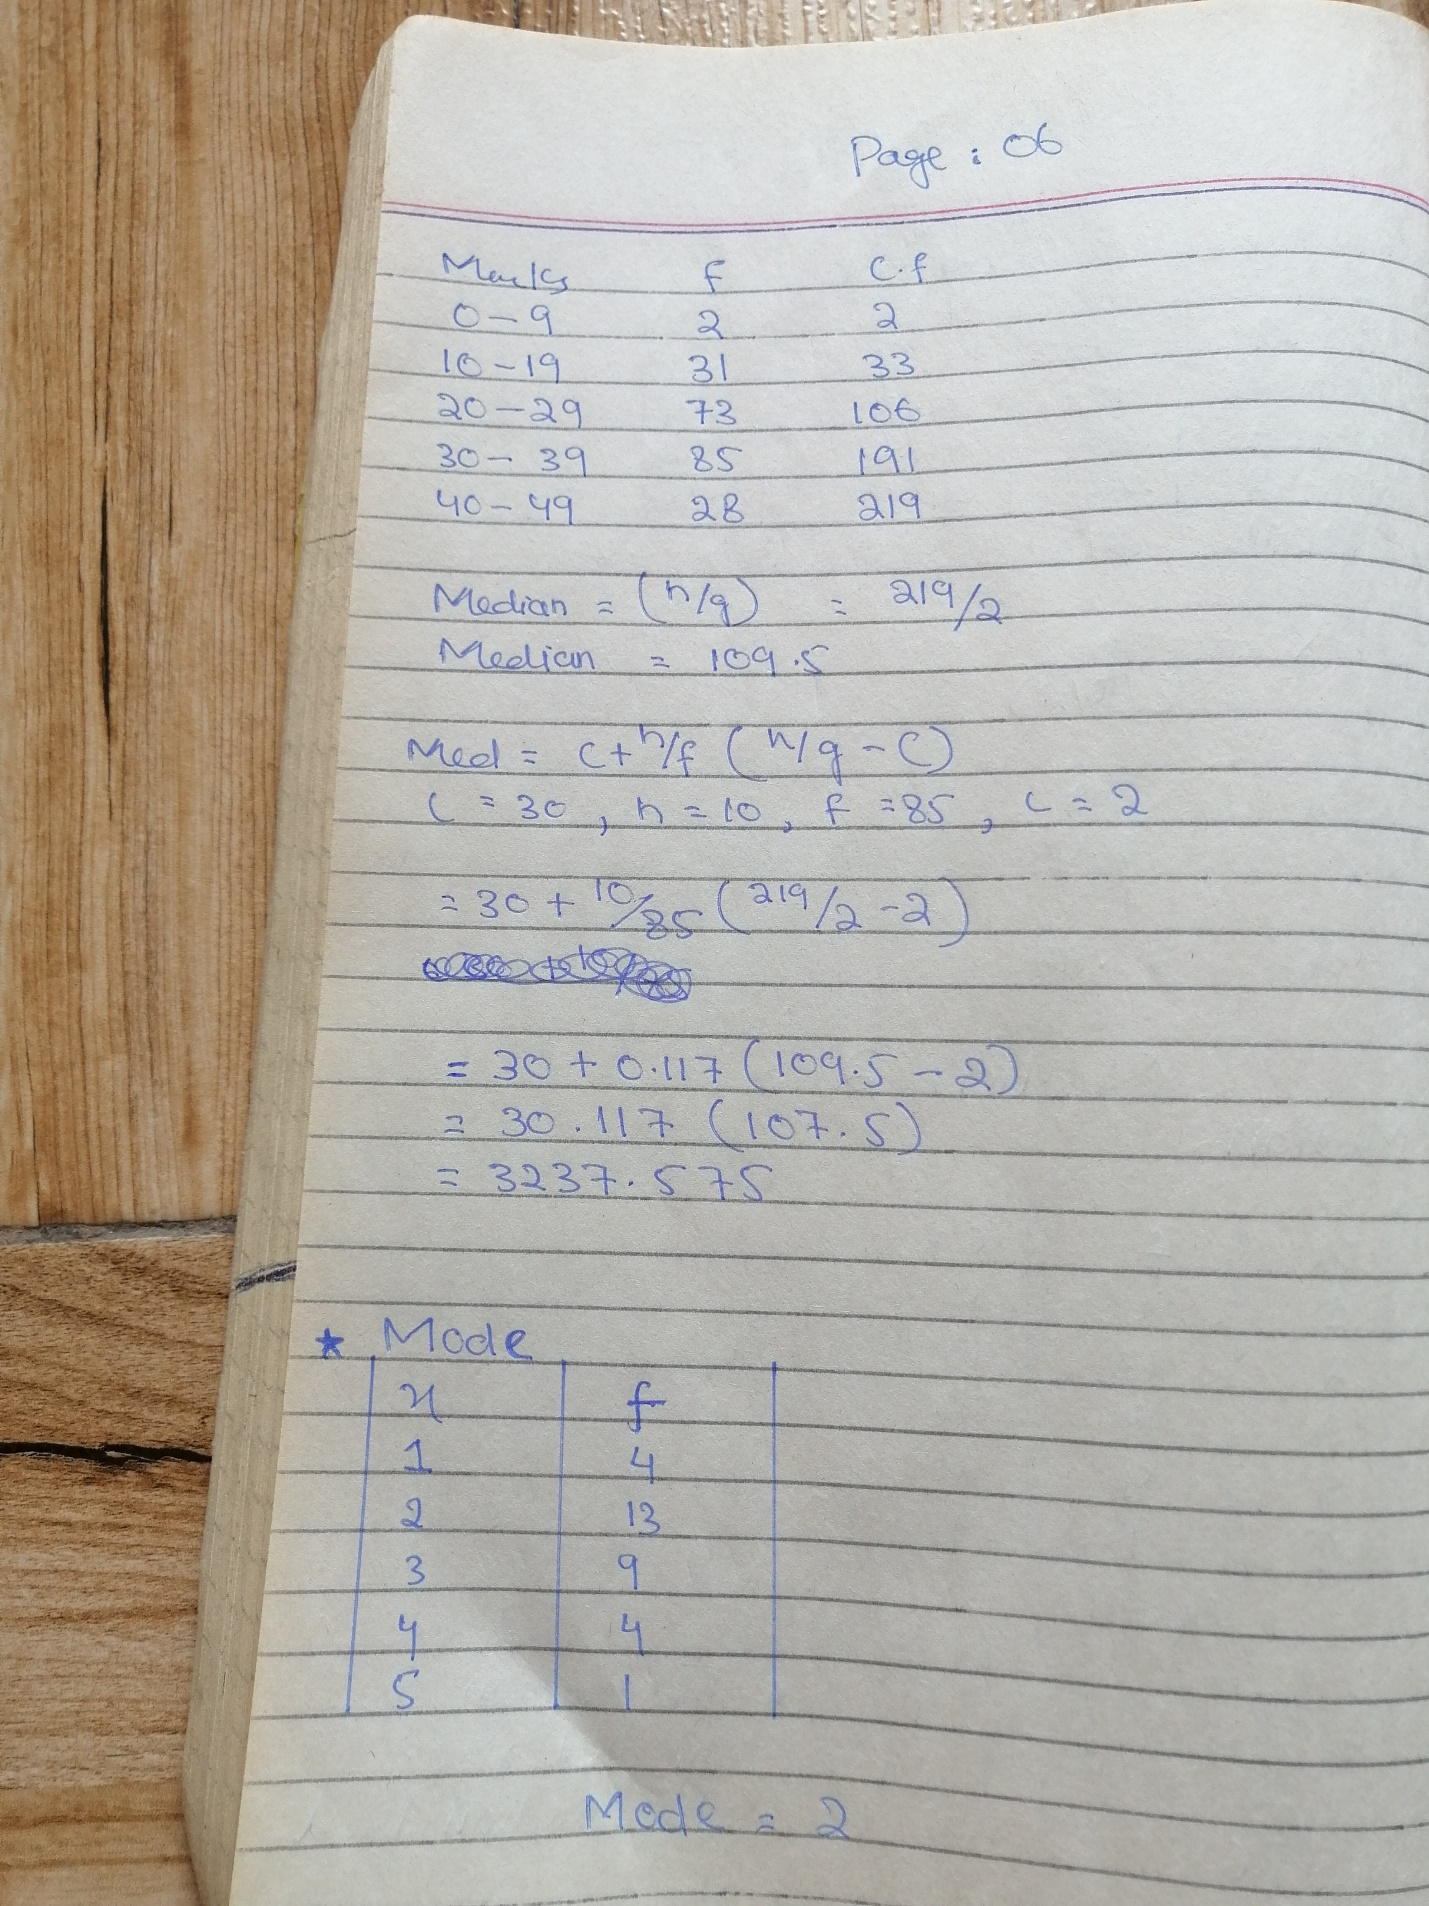 Page : 06
Marks f C.f
0-9 2 2
10-19 31 33
20-29 73 106
30-39 85 191
40-49 28 219
Median = (n/q) = 219/2
Median = 109.5
Med = C+h/f (n/q - C)
C = 30, h = 10, f = 85, C = 2
= 30 + 10/85 (219/2 - 2)
= 30 + 0.117 (109.5 - 2)
= 30.117 (107.5)
= 3237.575
★ Mode
x f
1 4
2 13
3 9
4 4
5 1
Mode = 2